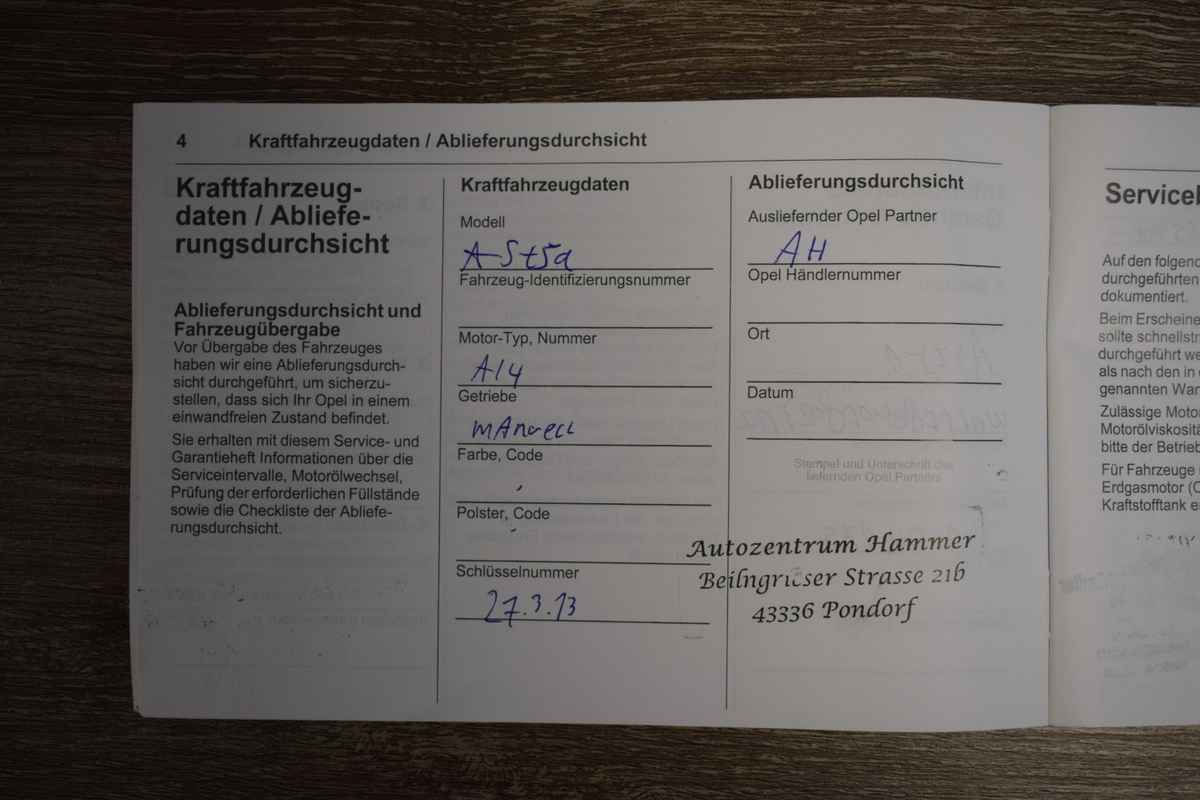 4 Kraftfahrzeugdaten / Ablieferungsdurchsicht
Kraftfahrzeug-
daten / Abliefe-
rungsdurchsicht
Ablieferungsdurchsicht und
Fahrzeugübergabe
Vor Übergabe des Fahrzeuges
haben wir eine Ablieferungsdurch-
sicht durchgeführt, um sicherzu-
stellen, dass sich Ihr Opel in einem
einwandfreien Zustand befindet.
Sie erhalten mit diesem Service- und
Garantieheft Informationen über die
Serviceintervalle, Motorölwechsel,
Prüfung der erforderlichen Füllstände
sowie die Checkliste der Abliefe-
rungsdurchsicht.
Kraftfahrzeugdaten
Modell
Fahrzeug-Identifizierungsnummer
Motor-Typ, Nummer
A14
Getriebe
Farbe, Code
Polster, Code
Schlüsselnummer
27.3.13
Ablieferungsdurchsicht
Ausliefernder Opel Partner
AH
Opel Händlernummer
Ort
Datum
Stempel und Unterschrift des
liefernden Opel Partners
Autozentrum Hammer
Beilngrieser Strasse 21b
43336 Pondorf
Auf den folgend
durchgeführten
dokumentiert.
Beim Erscheine
sollte schnellstn
durchgeführt we
als nach den in
genannten War
Zulässige Motor
Motorölviskositä
bitte der Betrieb
Für Fahrzeuge
Erdgasmotor (C
Kraftstofftank e